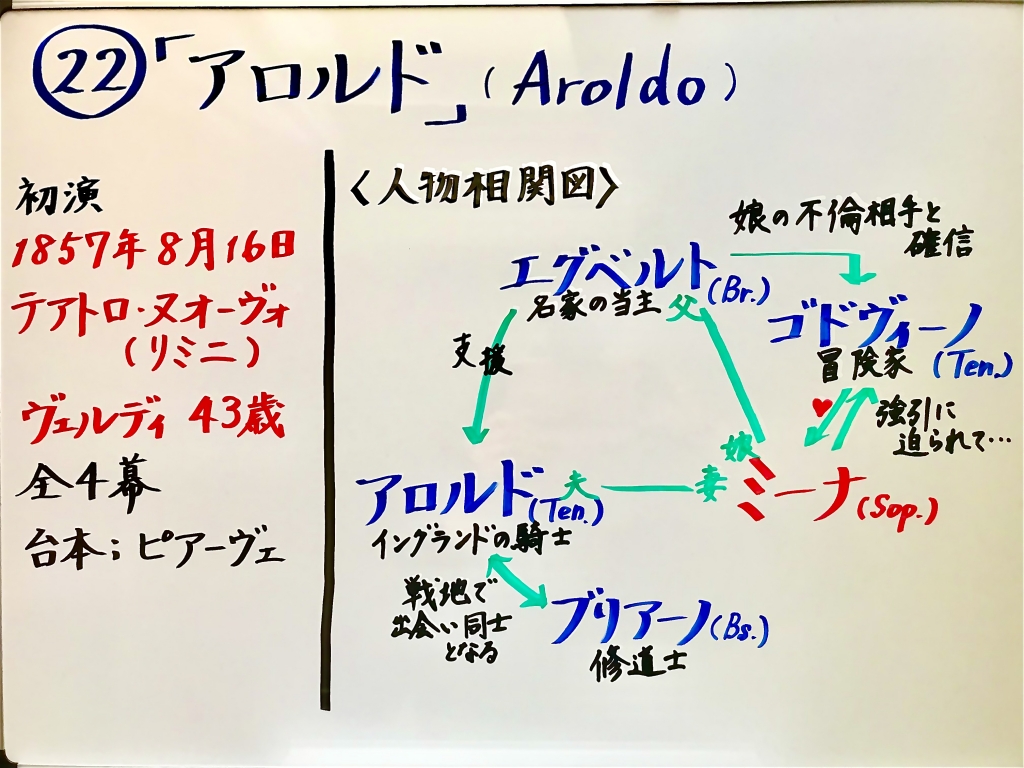 ㉒「アロルド」(Aroldo)
初演
1857年8月16日
テアトロ・ヌオーヴォ
(リミニ)
ヴェルディ 43歳
全4幕
台本；ピアーヴェ
〈人物相関図〉
娘の不倫相手と
確信
エグベルト(Br.)
名家の当主 父
ゴドヴィーノ
冒険家 (Ten.)
支援
強引に
迫られて…
娘
アロルド(Ten.) 夫
妻 ミーナ(Sop.)
イングランドの騎士
戦地で
出会い同士
となる
ブリアーノ(Bs.)
修道士